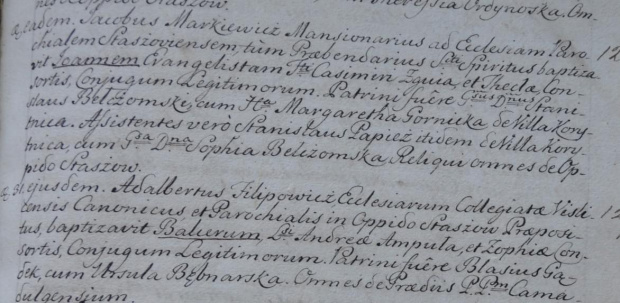 de Oppido Staszow. Theressia Ordynoska, Om-
eadem. Jacobus Markiewicz Mansionarius ad Eclesiam Paro- 12
chialem Staszoviensem, tum Præbendarius Sti Spiritus baptiza
vit Joannem Evangelistam Fm Casimiri Zquia, et Theclæ Con-
sortis, Conjugum Legitimorum. Patrini fuêre Gsus Dnus Stani
slaus Belczomski, cum Hta Margaretha Gornicka de Villa Kony-
tnica. Assistentes verò Stanislaus Papież itidem de Villa Kory-
tnica, cum Gsa Dna Sophia Belczomska, Reliqui omnes de Op-
pido Staszow.
31. ejusdem. Adalbertus Filipowicz Ecclesiarum Collegiatæ Visli- 12
censis Canonicus, et Parochialis in Oppido Staszow Præposi-
tus, baptizavit Andreæ Ampula, et Zophiæ Con-
sortis, Conjugum Legitimorum. Patrini fuêre Blasius Ga-
dek, cum Ursula Bębnarska. Omnes de Prædiis P.Pm Cama-
dulgensium.